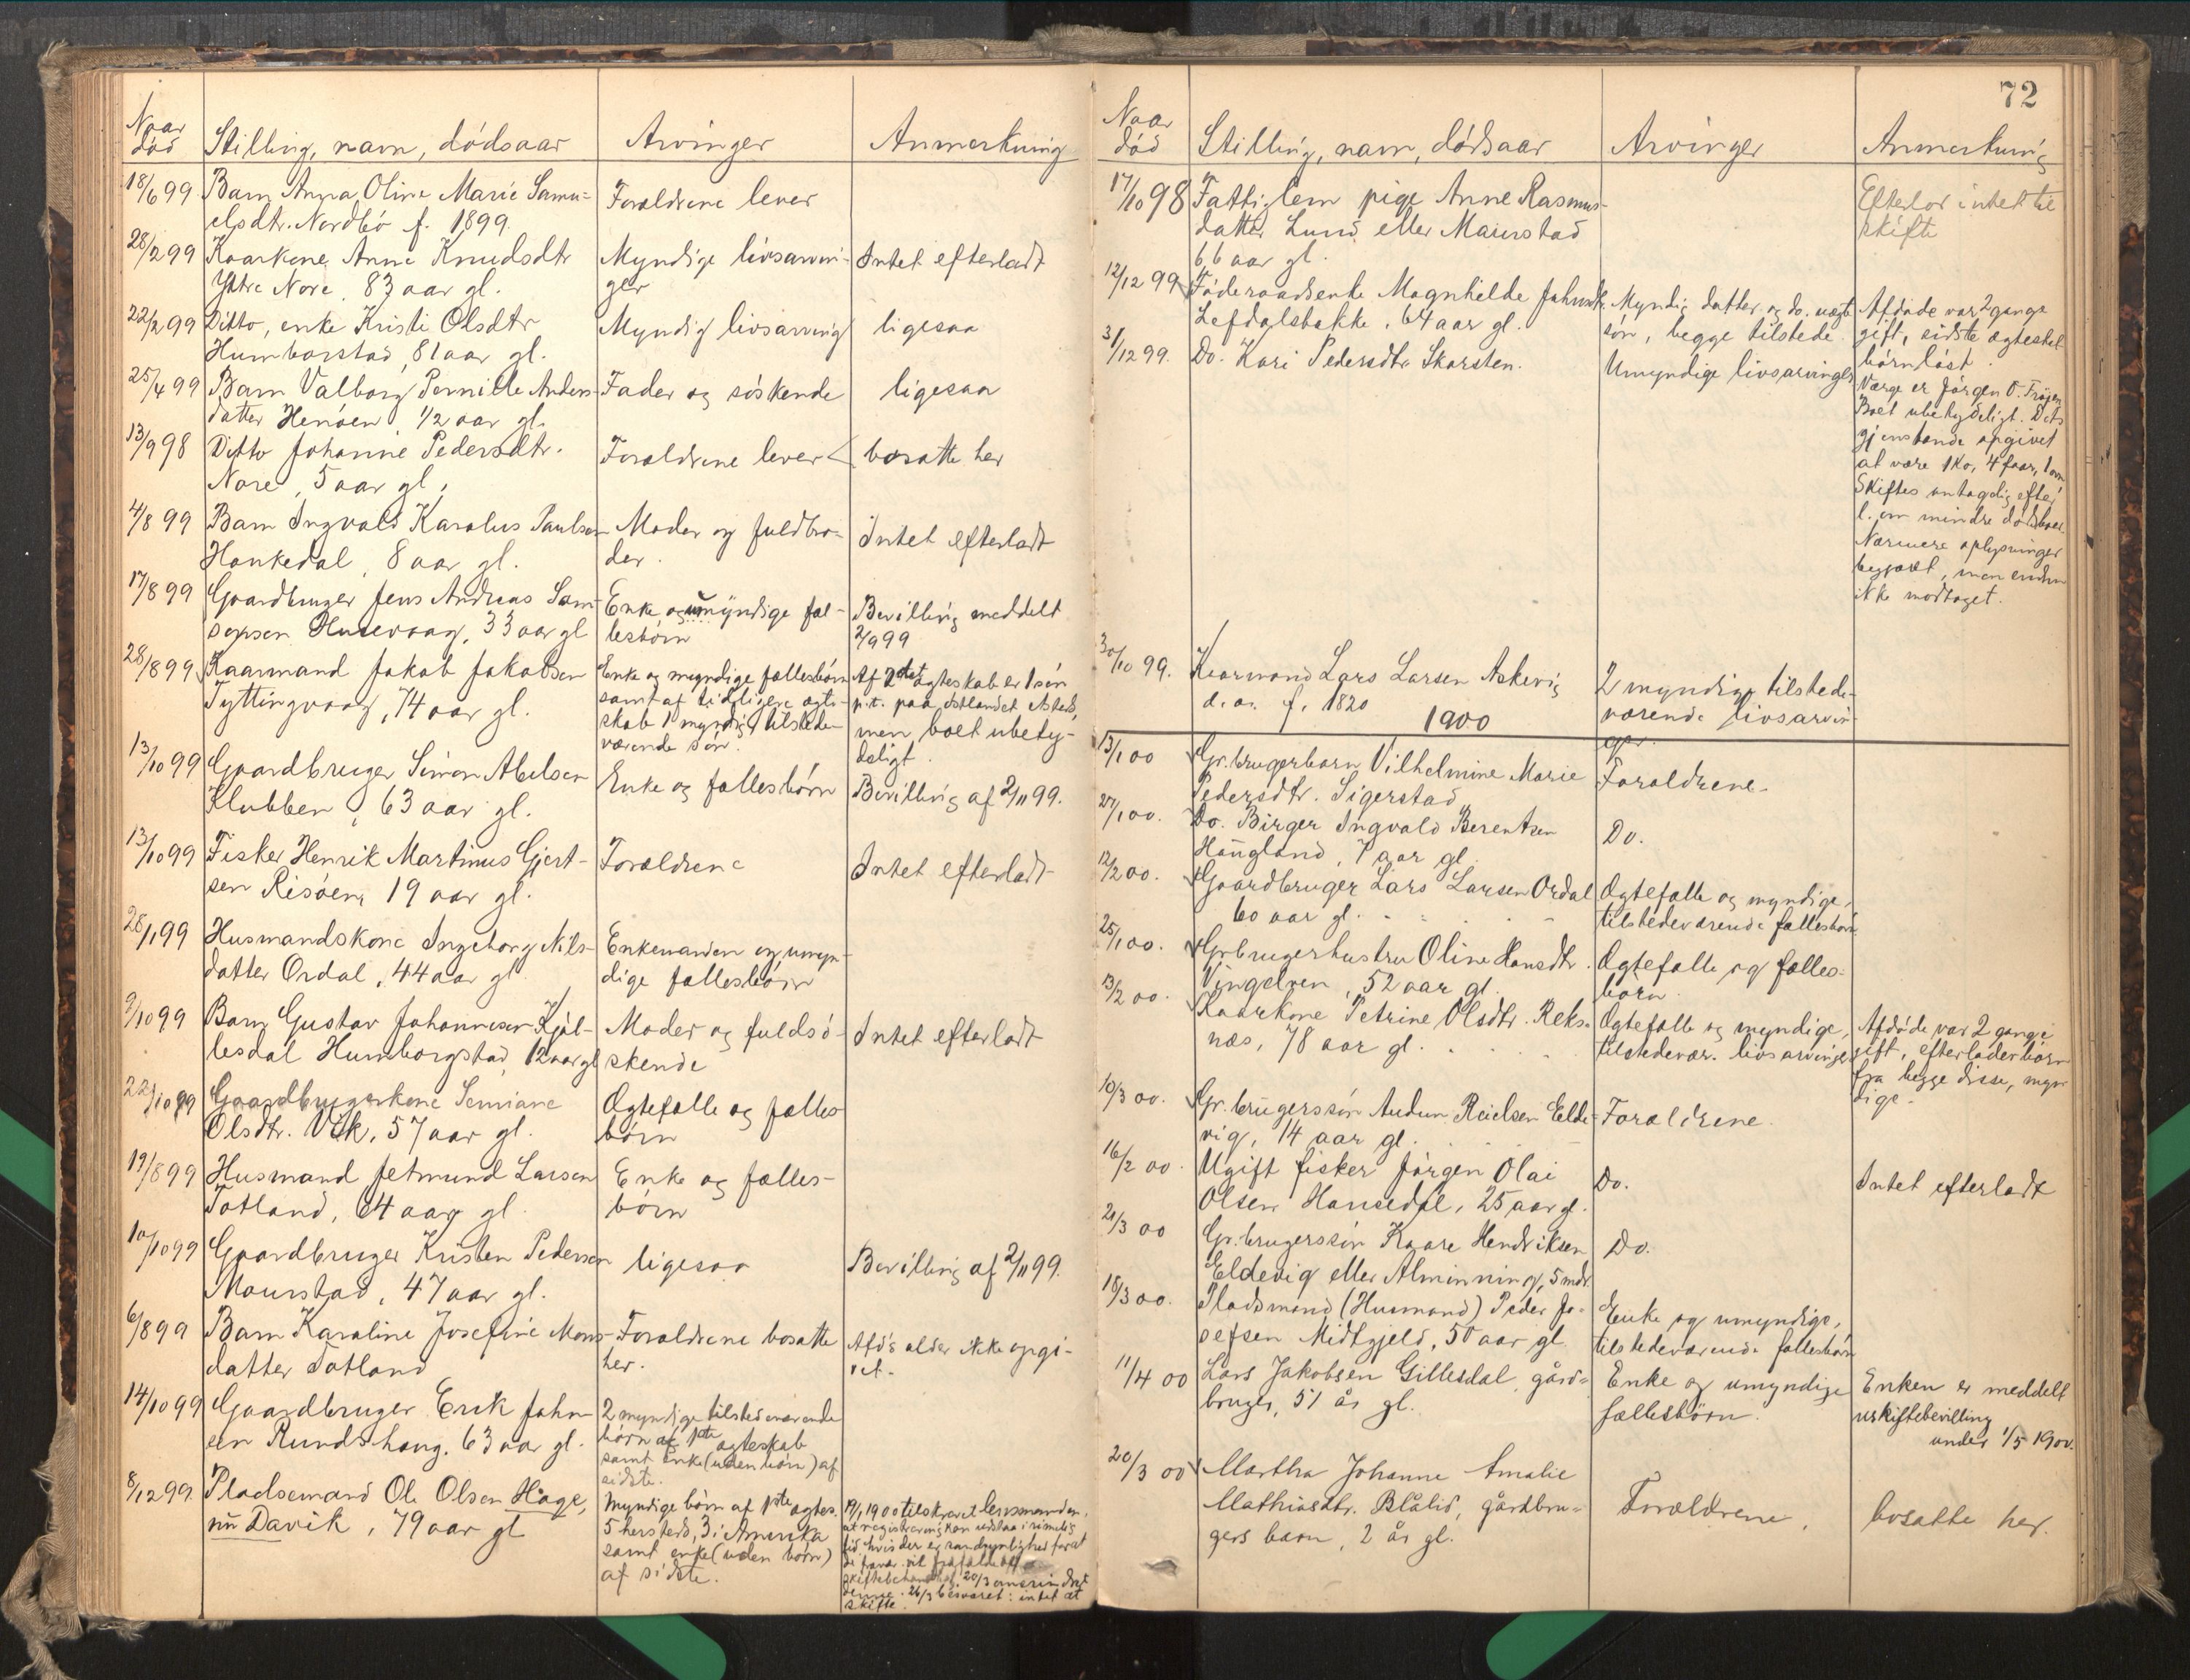 Naar død
Stilling, navn, dødsaar
Arvinger
Anmerkning
18/6 99
Barn Anna Oline Marie Samu-
elsdtr. Nordbö f. 1899.
Forældrene lever
28/2 99
Kaarkone Anne Knudsdtr
Ytre Nore, 83 aar gl.
Myndige livsarvin-
ger
Intet efterladt
22/2 99
Ditto, enke Kristi Olsdtr
Humborstad, 81 aar gl.
Myndig livsarving
ligesaa
25/4 99
Barn Valborg Pernille Anders-
datter Henöen, 1/2 aar gl.
Fader og söskende
ligesaa
13/9 98
Ditto Johanne Pedersdtr.
Nore, 5 aar gl.
Forældrene lever
bosatte her
4/8 99
Barn Ingvald Karolus Paulsen
Haukedal, 8 aar gl.
Moder og fuldbro-
der.
Intet efterladt
17/8 99
Gaardbruger Jens Andreas Sam-
sonsen Husevaag, 33 aar gl
Enke og umyndige fæl-
lesbörn
Bevilling meddelt
2/9 99
28/8 99
Kaarmand Jakob Jakobsen
Tyttingvaag, 74 aar gl.
Enke og myndige fællesbörn
samt af tidligere ægte-
skab 1 myndig tilstede-
værende sön.
Af 2det ægteskab er 1 sön
p.t. paa östlandet
men boet ubety-
deligt.
13/10 99
Gaardbruger Simon Abelsen
Klubben, 63 aar gl.
Enke og fællesbörn
Bevilling af 2/11 99.
13/10 99
Fisker Henrik Martinus Gjert-
sen Risöen, 19 aar gl.
Forældrene
Intet efterladt
28/1 99
Husmandskone Ingeborg Nils-
datter Ordal, 44 aar gl
Enkemanden og umyn-
dige fællesbörn
9/10 99
Barn Gustav Johannesen Kjöl-
lesdal Humborgstad, 12 aar gl
Moder og fuldsö-
skende
Intet efterladt
22/10 99
Gaardbrugerkone Semiane
Olsdtr. Vik, 57 aar gl.
Ægtefælle og fælles
börn
19/8 99
Husmand Jetmund Larsen
Totland, 64 aar gl.
Enke og fælles-
börn
10/10 99
Gaardbruger Kristen Pedersen
Maurstad, 47 aar gl.
ligesaa
Bevilling af 2/11 99.
6/8 99
Barn Karoline Josefine Mons-
datter Totland
Forældrene bosatte
her.
Afd's alder ikke opgi-
vet.
14/10 99
Gaardbruger Erik Johan-
sen Rundshaug. 63 aar gl.
2 myndige tilstedeværende
börn af 1ste ægteskab
samt enke (uden börn) af
sidste.
8/12 99
Pladsemand Ole Olsen Hage,
nu Davik, 79 aar gl
Myndige börn af 1ste ægtes.
5 hersteds, 3 i Amerika
samt enke (uden börn)
af sidste.
19/1 1900 tilskrevet lensmanden,
at registrering kan udstaa i rimelig
tid hvis der er sandsynlighed for at
skiftebehandling 20/3 omerindret
denne. 26/3 besvaret: intet at
skifte.
72
Naar død
Stilling, navn, dødsaar
Arvinger
Anmerkning
17/10 98
Fattiglem pige Anne Rasmus-
datter Lund eller Maurstad
66 aar gl.
Efterlod intet til
skifte
12/12 99
Föderaadsenke Magnhilde Johnsdtr.
Lefdalsbakke, 64 aar gl.
Myndig datter og do. uægte
sön, begge tilstede.
Afdöde var 2 gange
gift, sidste ægteskab
börnlöst.
31/12 99.
Do. Kari Pedersdtr. Skorsten.
Umyndige livsarvinger
Værge er Jörgen O. Tröjen
Boet ubetydeligt. Dets
gjenstande opgivet
at være 1 ko, 4 faar, 1 ovn
Skiftes antagelig efter
l. om mindre dödsboer.
Nærmere oplysninger
begjært, men endnu
ikke modtaget.
30/10 99.
Kaarmand Lars Larsen Askevig
d. a. f. 1820
2 myndige tilstede-
værende livsarvin-
ger.
1900
13/1 00
Gr.brugerbarn Vilhelmine Marie
Pedersdtr. Sigerstad
Forældrene.
27/1 00.
Do. Birger Ingvald Berentsen
Haugland, 7 aar gl.
Do.
12/2 00.
Gaardbruger Lars Larsen Ordal
60 aar gl.
Ægtefælle og myndige,
tilstedeværende fællesbörn
25/1 00.
Grbrugerhustru Oline Hansdtr.
Vingelven, 52 aar gl.
Ægtefælle og fælles-
börn.
13/2 00.
Kaarkone Petrine Olsdtr. Reks-
næs, 78 aar gl.
Ægtefælle og myndige,
tilstedevær. livsarvinger
Afdöde var 2 gange
gift, efterlader börn
fra begge disse, myn-
dige.
10/3 00.
Gr.brugerssön Audun Reielsen Elde-
vig, 14 aar gl.
Forældrene.
16/2 00.
Ugift fisker Jörgen Olai
Olsen Hansedal, 25 aar gl.
Do.
Intet efterladt
21/3 00
Gr.brugerssön Kaare Hendriksen
Eldevig eller Alminning, 5 mdr.
Do.
18/3 00.
Pladsmand (Husmand) Peder Jo-
sefsen Midtgjeld, 50 aar gl
Enke og umyndige,
tilstedeværende fællesbörn
11/4 00
Lars Jakobsen Gillesdal, gård-
bruger, 51 år gl.
Enke og umyndige
fællesbörn.
Enken er meddelt
uskiftebevilling
under 1/5 1900.
20/3 00
Martha Johanne Amalie
Mathiasdtr. Blålid, gårdbru-
gers barn, 2 år gl.
Forældrene,
bosatte her.